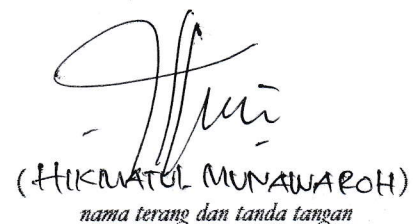 (HIKMATUL MUNAWAROH)
nama terang dan tanda tangan